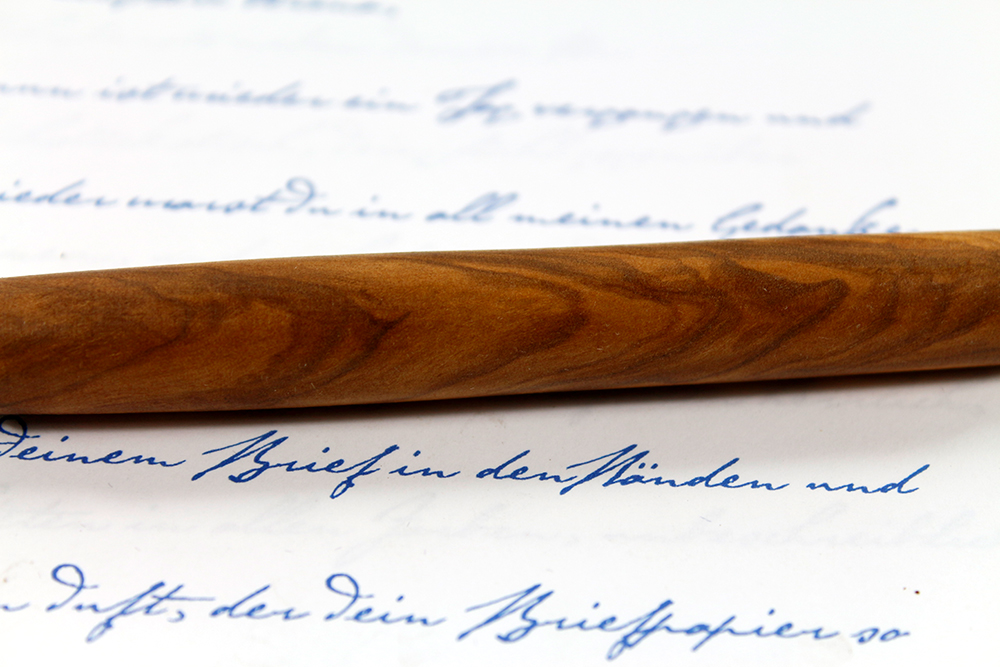 ist wieder ein Tag vergangen und
warst Du in all meinen Gedanke
Deinem Brief in den Händen und
Duft, der Dein Briefpapier so